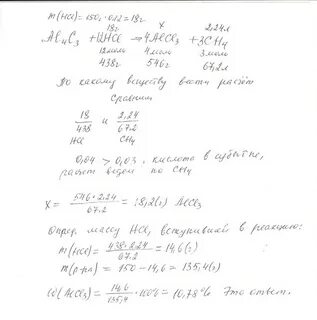 m(HCl) = 150г · 0.12 = 18г
18г x 2,24л
Al4C3 + 12HCl → 4AlCl3 + 3CH4
12моль 4моль 3моль
438г 546г 67,2л
По какому веществу вести расчёт
Сравним
18/438 и 2,24/67.2
HCl CH4
0,04 > 0,03, кислота в избытке,
расчет ведем по CH4
X = 546·2.24/67.2 = 18,2(г) AlCl3
Опред. массу HCl, вступившей в реакцию:
m(HCl) = 438·2.24/67.2 = 14,6(г)
m(р-ра) = 150 – 14,6 = 135,4(г)
ω(AlCl3) = 14,6/135,4 · 100% = 10,78% Это ответ.